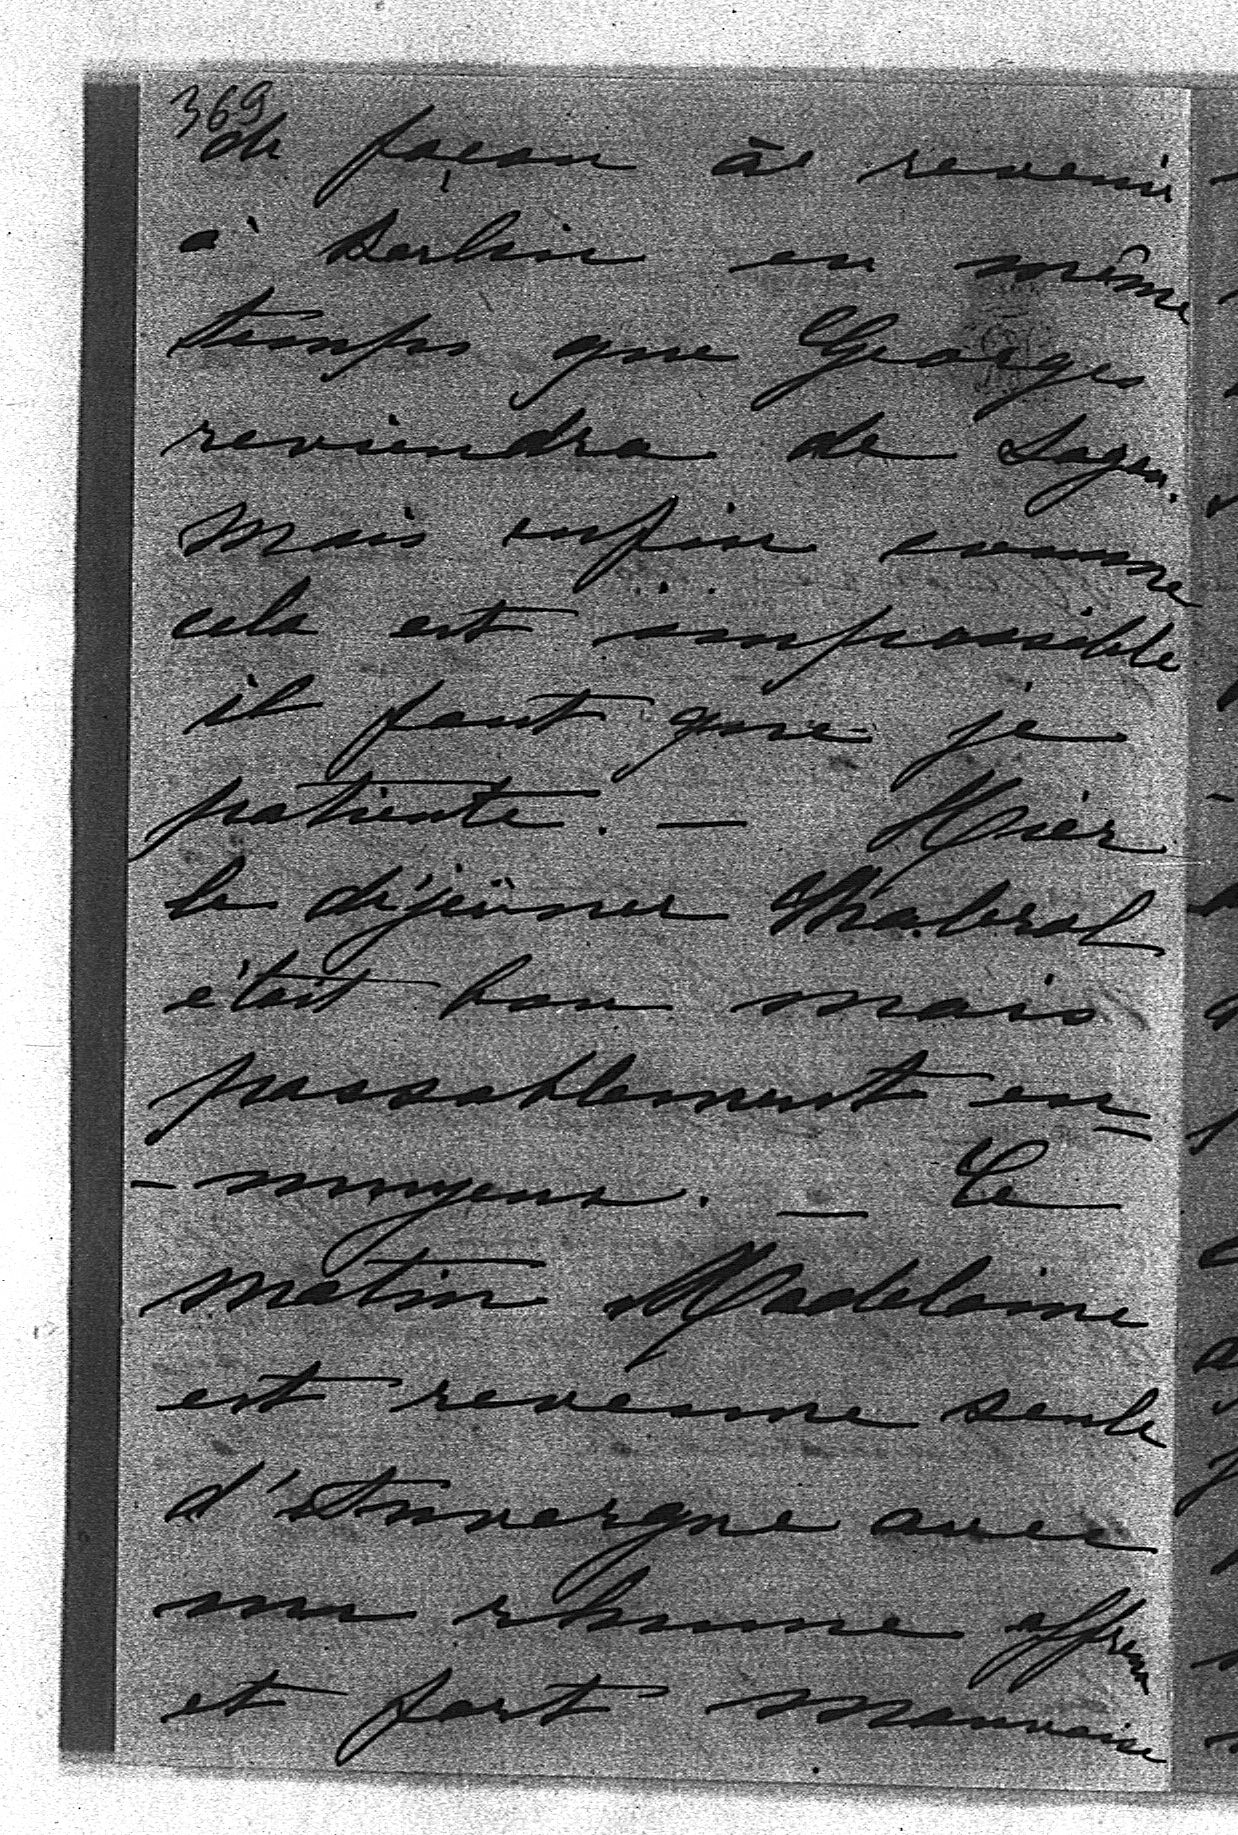 369
de façon à revenir
à Berlin en même
temps que Georges
reviendra de Sagan.
Mais enfin comme
cela est impossible
il faut que je
patiente. — Hier
le déjeuner Chabrol
était bon mais
passablement en-
-nuyeux. — Ce
matin Madeleine
est revenue seule
d'Auvergne avec
un rhume affreux
et fort mauvaise